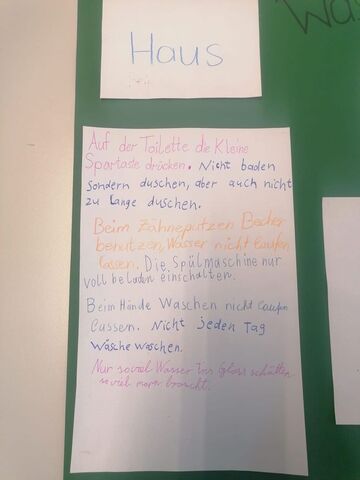 Haus
Was
Auf der Toilette die Kleine
Spartaste drücken. Nicht baden
sondern duschen, aber auch nicht
zu lange duschen.
Beim Zähneputzen Becher
benutzen, Wasser nicht laufen
lassen. Die Spülmaschine nur
voll beladen einschalten.
Beim Hände Waschen nicht laufen
lassen. Nicht jeden Tag
Wäsche waschen.
Nur so viel Wasser ins Glas schütten
so viel man braucht.